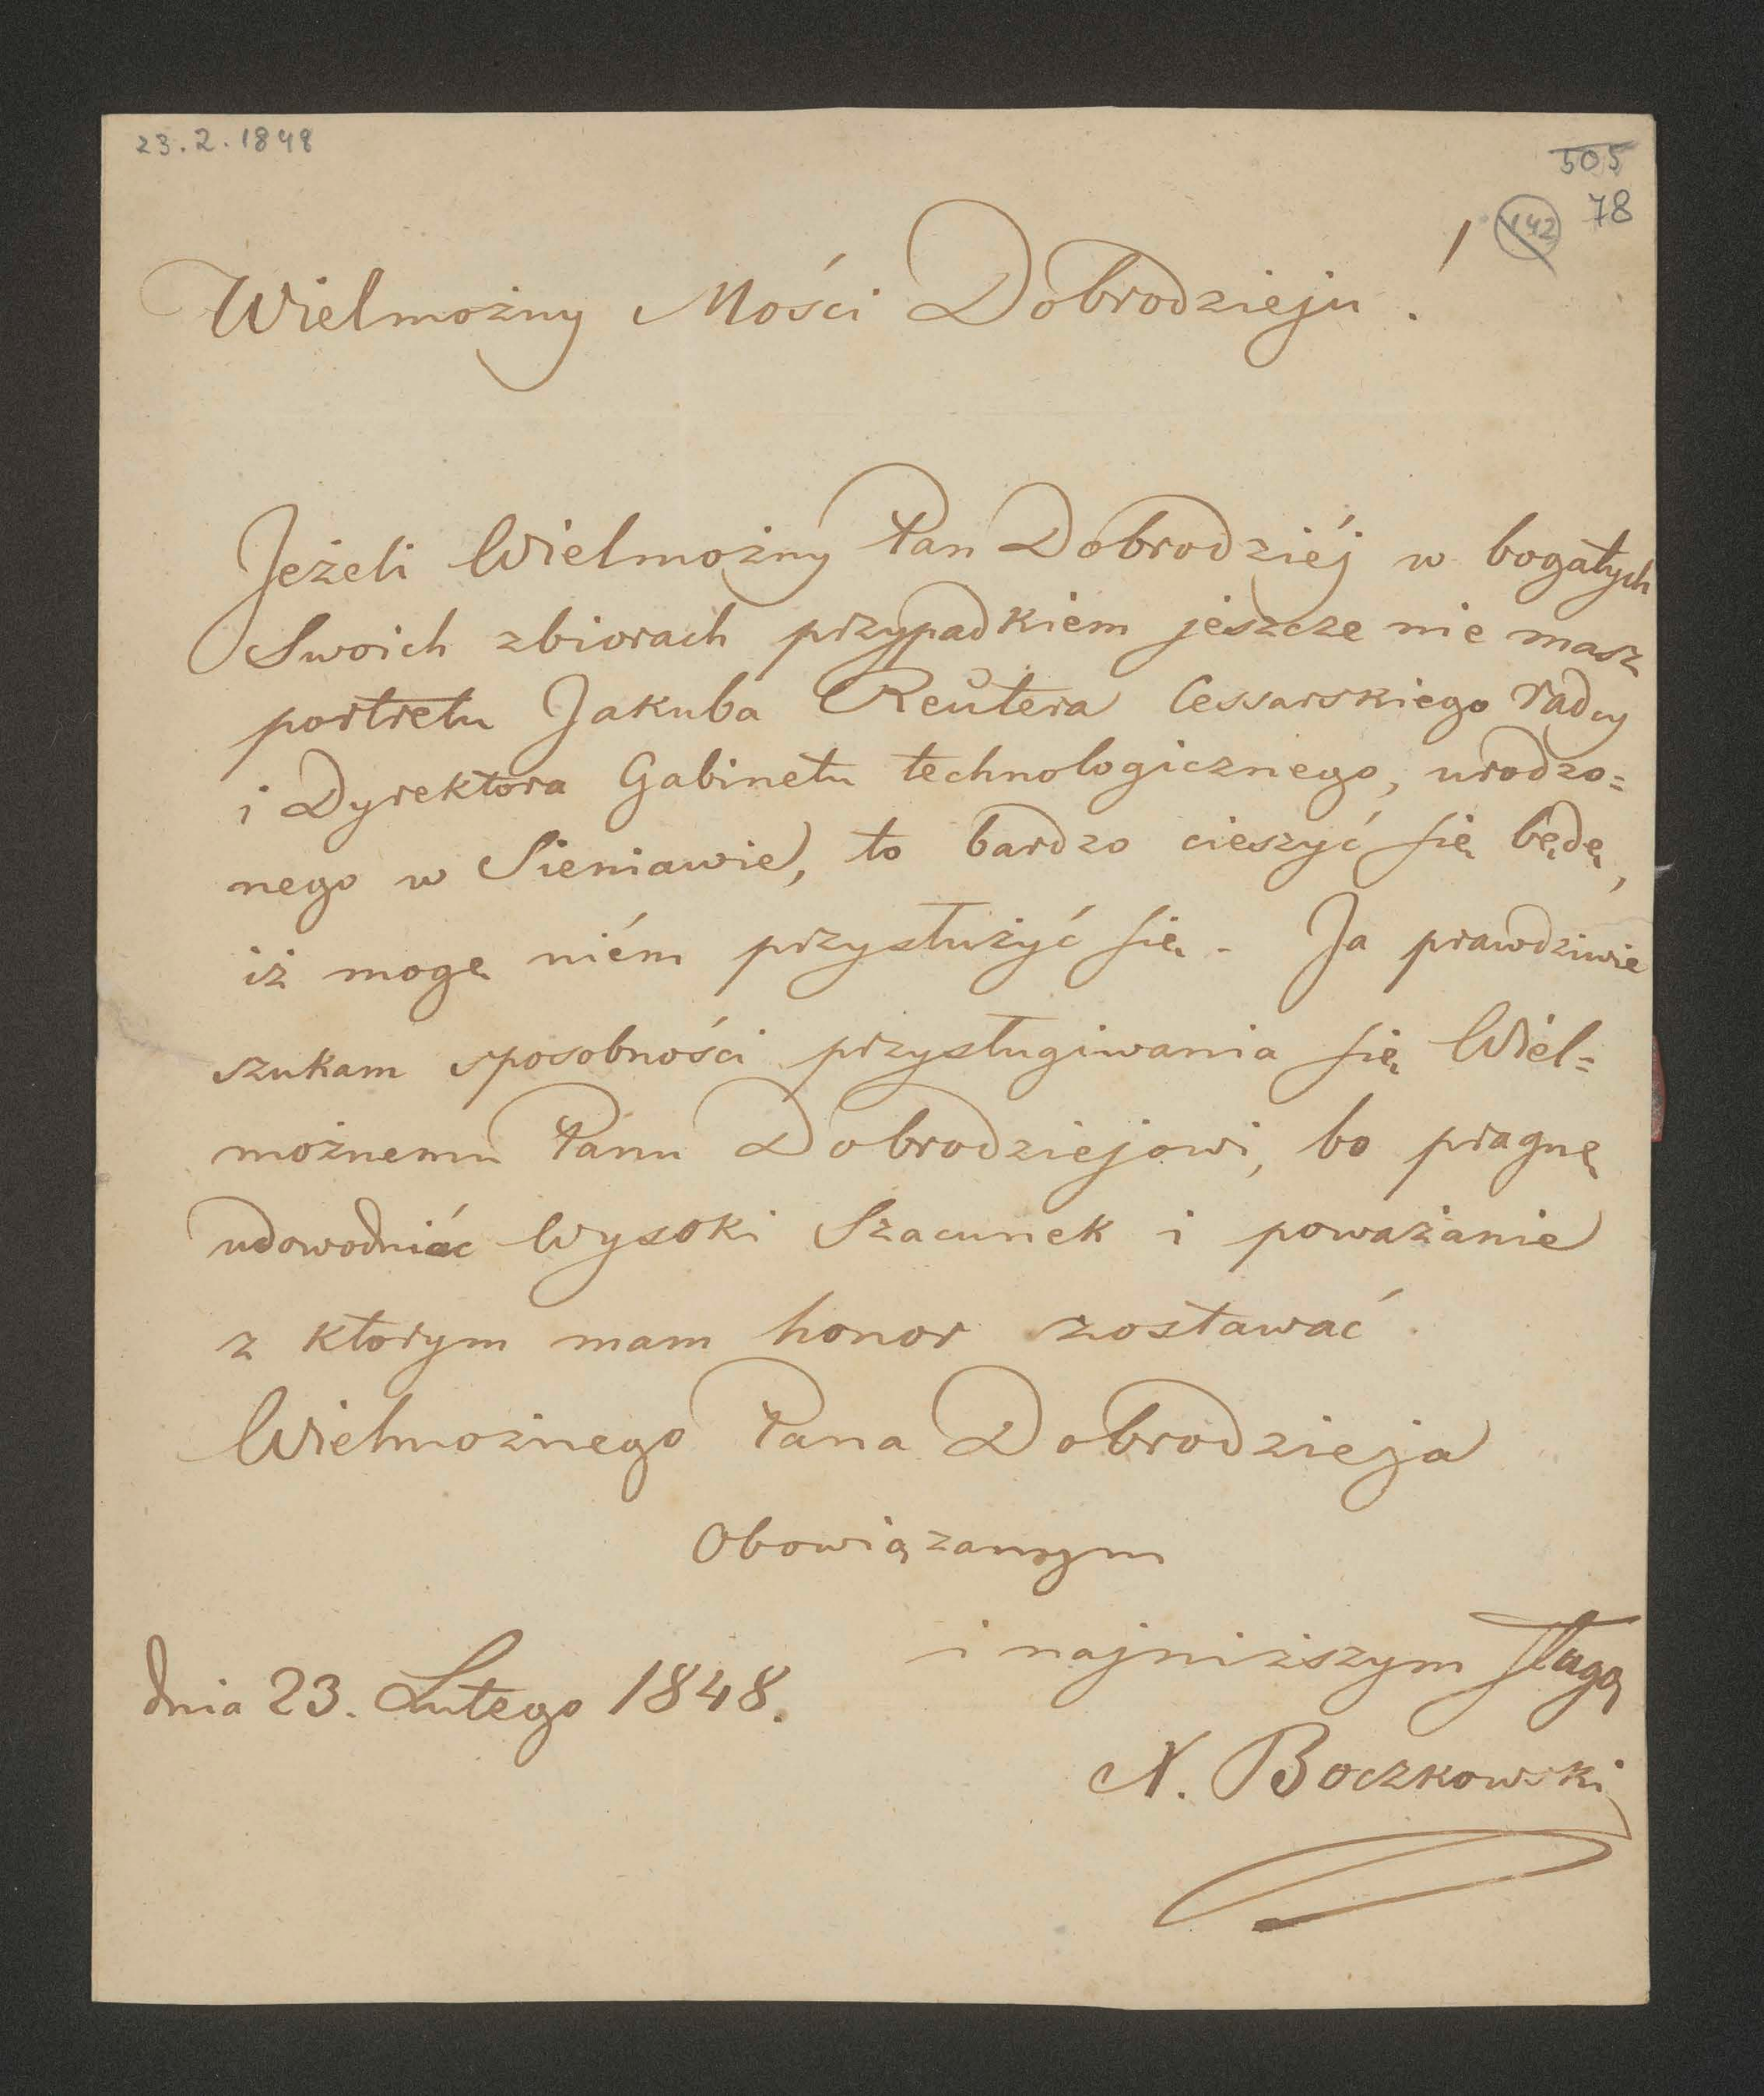 23.2.1848
505
142 78
Wielmożny Mości Dobrodzieju!
Jeżeli Wielmożny Pan Dobrodziéj w bogatych
Swoich zbiorach przypadkiem jeszcze nie masz
portretu Jakuba Reutera Cessarskiego radcy
i Dyrektora Gabinetu technologicznego, urodzo=
nego w Sieniawie, to bardzo cieszyć się będę,
iż mogę niém przysłużyć się. Ja prawdziwie
szukam sposobności przysługiwania się Wiel=
możnemu Panu Dobrodziejowi, bo pragnę
udowodniać Wysoki Szacunek i poważanie
z ktorym mam honor zostawać
Wielmożnego Pana Dobrodzieja
Obowiązanym
i najniższym sługą
dnia 23. Lutego 1848.
N. Boczkowski